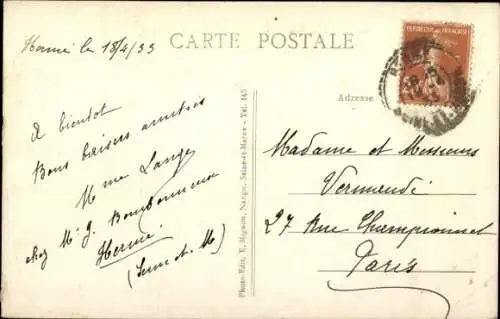 Hermé le 18/4/33
CARTE POSTALE
REPUBLIQUE FRANÇAISE
Adresse
A bientot
Bons baisers amitiés
Mme Lange
chez Mr J. Bourbonneux
Hermé
(Seine et M)
Photo-Edit. E. Mignon, Nangis, Seine-et-Marne - Tél. 145
Madame et Messieurs
Vermandé
27 Rue Championnet
Paris